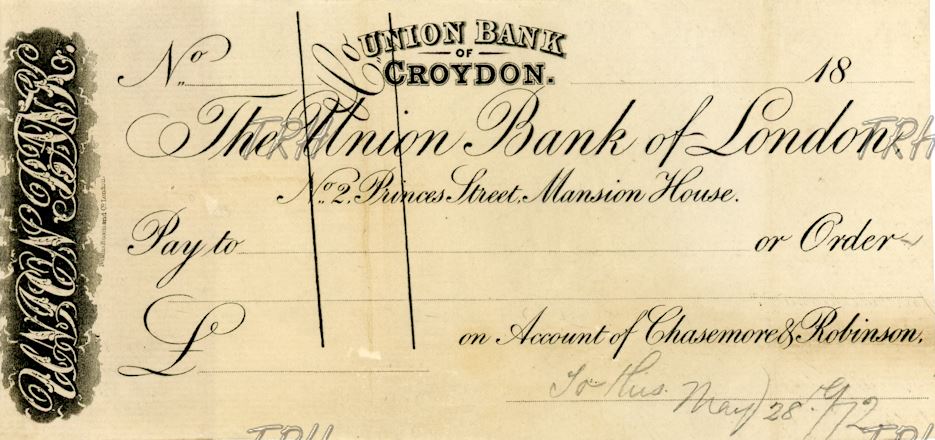 UNION BANK
OF
CROYDON.
No 18
& Co
The Union Bank of London,
No. 2, Princes Street, Mansion House.
Pay to or Order
£
on Account of Chasemore & Robinson.
May 28 72
UNION BANK
TRH
TRH
TRH
TRH